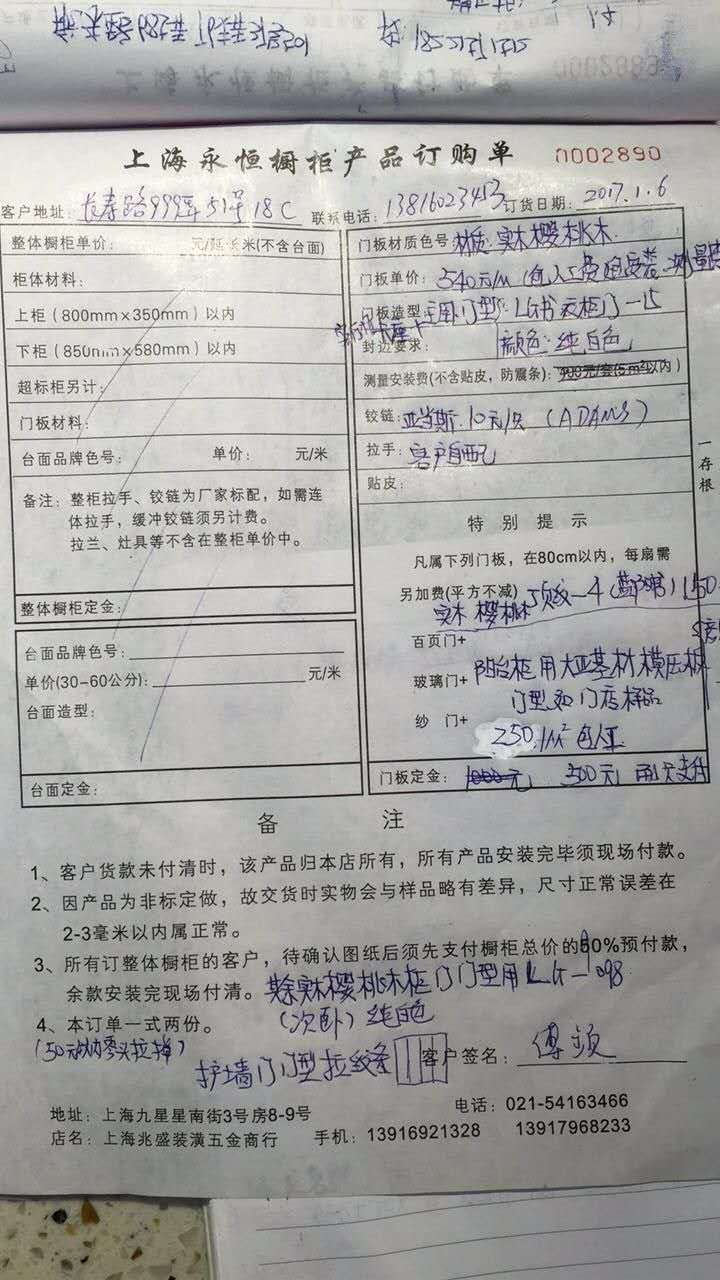 0002889
上海永恒橱柜产品订购单
0002890
客户地址：长寿路999弄51号18C 联系电话：13816023453 订货日期：2017.1.6
整体橱柜单价： 元/延长米(不含台面)
柜体材料：
上柜（800mm×350mm）以内
下柜（850mm×580mm）以内
超标柜另计：
门板材料：
台面品牌色号： 单价： 元/米
备注：整柜拉手、铰链为厂家标配，如需连
体拉手，缓冲铰链须另计费。
拉兰、灶具等不含在整柜单价中。
整体橱柜定金：
台面品牌色号：
单价(30-60公分)： 元/米
台面造型：
台面定金：
门板材质色号：材质：实木樱桃木
门板单价：540元/M
门板造型：
封边要求： 颜色：纯白色
测量安装费(不含贴皮，防震条)：
铰链：亚当斯 10元/只（ADAMS）
拉手：客户自配
贴皮：
一存根
特别提示
凡属下列门板，在80cm以内，每扇需
另加费(平方不减)
实木樱桃木
百页门+
玻璃门+ 阳台柜用大亚基材模压板
门型和门店样品
纱 门+
250.1M² 包人工
门板定金：1000元 500元
备 注
1、客户货款未付清时，该产品归本店所有，所有产品安装完毕须现场付款。
2、因产品为非标定做，故交货时实物会与样品略有差异，尺寸正常误差在
2-3毫米以内属正常。
3、所有订整体橱柜的客户，待确认图纸后须先支付橱柜总价的80%预付款，
余款安装完现场付清。其余实木樱桃木柜门门型用LG-098
4、本订单一式两份。 （次卧）纯白色
护墙门门型拉纹条
客户签名：
地址：上海九星星南街3号房8-9号 电话：021-54163466
店名：上海兆盛装潢五金商行 手机：13916921328 13917968233